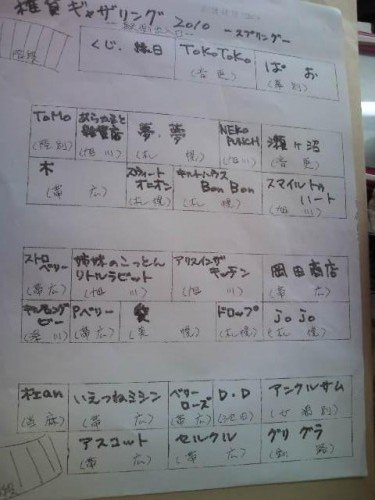 雑貨ギャザリング 2010 ースプリングー
階段
くじ. 縁日 TOKOTOKO ぱお
(音更) (芽別)
TOMO あらたまと雑貨店 夢.夢 NEKO PUNCH 瀬ヶ沼
(旭川) (札幌) (旭川) (音更)
木 スウィートオニオン キルトハウス BonBon スマイルtoハート
(帯広) (札幌) (札幌) (旭川)
ストロベリー 姉妹のこっとんリトルラビット アリスインザキッチン 岡田商店
(帯広) (旭川) (旭川) (帯広)
キルティングビー Pベリー ドロップ jojo
(帯広) (札幌) (札幌)
杜an いえつねミシン ベリーローズ D.D アンクルサム
(帯広) (帯広) (池田)
アスコット セルクル グリグラ
(帯広) (帯広) (釧路)